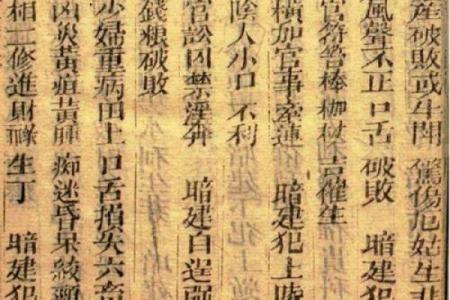 產破敗或生開 驚傷尼姑生非
風聲不正口舌 破敗 暗建犯
官符笞棒枷杖 吉催生
橫加官事牽連 暗建犯上時
陰人小口不利
官訟囚禁淫奔 暗建白逞
錢粮破敗
少婦重病田土口舌損失六畜
凶災黃疸黃腫 痴迷昏呆綾
相二修進財祿 生丁 暗建犯